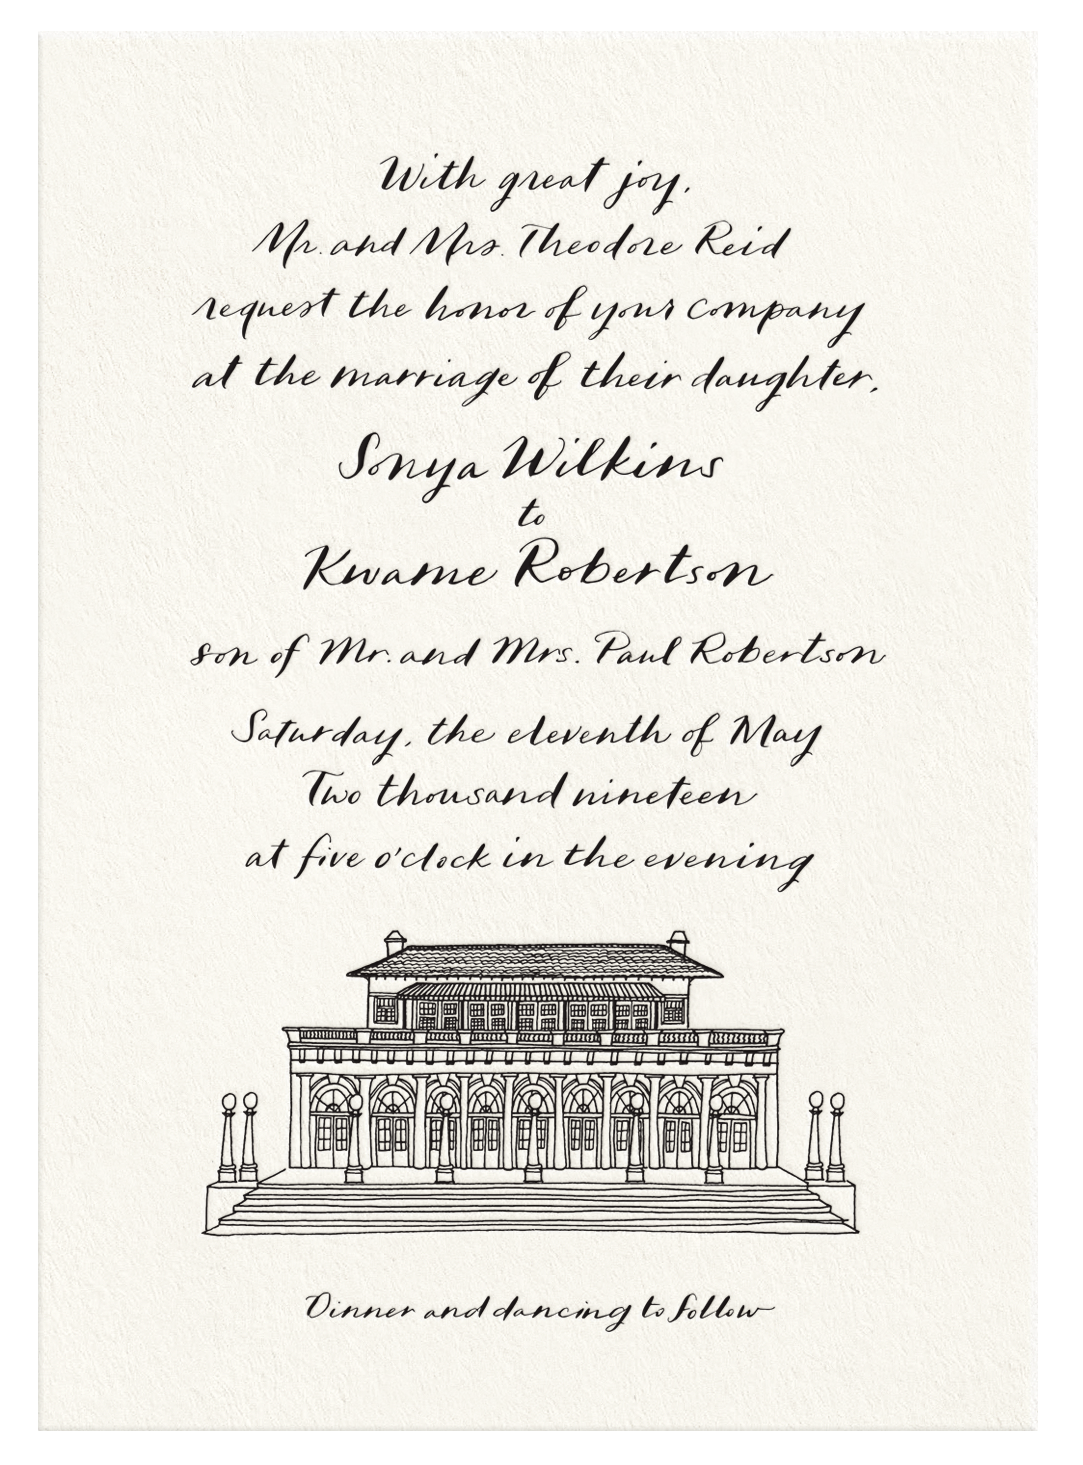 With great joy,
Mr. and Mrs. Theodore Reid
request the honor of your company
at the marriage of their daughter,
Sonya Wilkins
to
Kwame Robertson
son of Mr. and Mrs. Paul Robertson
Saturday, the eleventh of May
Two thousand nineteen
at five o'clock in the evening
Dinner and dancing to follow